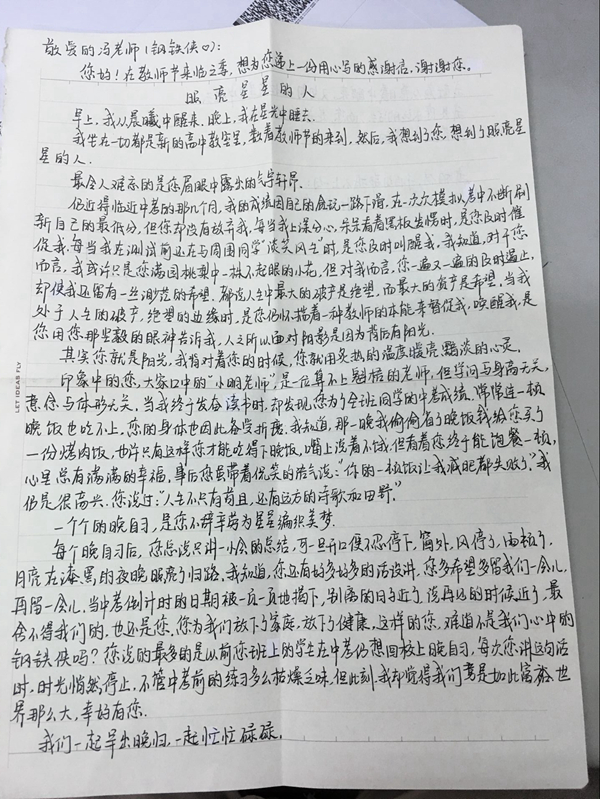 敬爱的冯老师(钢铁侠):
您好!在教师节来临之季,想为您递上一份用心写的感谢信,谢谢您。
照亮星星的人
早上,我从晨曦中醒来,晚上,我在星光中睡去.
我坐在一切都是新的高中教室里,数着教师节的来到,然后,我想到了您,想到了照亮星
星的人.
最令人难忘的是您眉眼中露出的气宇轩昂.
仍记得临近中考的那几个月,我的成绩因自己的贪玩一路下滑,在一次次模拟考中不断刷
新自己的最低份,但您却没有放弃我,每当我上课分心,呆呆看着黑板发愣时,是您及时催
促我,每当我在测试前还在与周围同学"谈笑风生"时,是您及时叫醒我,我知道,对于您
而言,我或许只是您满园桃梨中一抹不起眼的小花,但对我而言,您一遍又一遍的及时遏止,
却使我还留有一丝渺茫的希望,都说人生中最大的破产是绝望,而最大的资产是希望,当我
处于人生的破产,绝望的边缘时,是您仍怀揣着一种教师的本能来督促我,唤醒我,是
您用您那坚毅的眼神告诉我,人之所以面对阴影是因为背后有阳光.
其实您就是阳光,我背对着您的时候,您就用炙热的温度暖亮黯淡的心灵.
印象中的您,大家口中的"小明老师",是一位算不上魁梧的老师,但学问与身高无关,
意念与体形无关,当我终于发奋读书时,却发现,您为了全班同学的中考成绩,常常连一顿
晚饭也吃不上,您的身体也因此备受折磨,我知道,那一晚我偷偷省了晚饭钱给您买了
一份烤肉饭,也许只有这样您才能吃得下晚饭,嘴上说着不饿,但看着您终于能饱餐一顿,
心里总有满满的幸福,事后您虽带着优笑的语气说:"你的一顿饭让我减肥都失败了."我
仍是很高兴.您说过:"人生不只有苟且,还有远方的诗歌和田野."
一个个的晚自习,是您不辞辛劳为星星编织美梦.
每个晚自习后,您总说只讲一小会的总结,可一旦开口便不忍停下,窗外,风停了,雨粒了,
月亮在漆黑的夜晚照亮了归路,我知道,您还有好多好多的话没讲,您多希望多留我们一会儿,
再留一会儿,当中考倒计时的日期被一页一页地揭下,别离的日子近了,说再见的时候近了,最
舍不得我们的,也还是您,您为我们放下了家庭,放下了健康,这样的您,难道不是我们心中的
钢铁侠吗?您说的最多的是以前您班上的学生在中考仍想回校上晚自习,每次您讲这句话
时,时光悄然停止,不管中考前的练习多么枯燥乏味,但此刻,我却觉得我们竟是如此富裕,世
界那么大,幸好有您.
我们一起早出晚归,一起忙忙碌碌.
LET IDEAS FLY